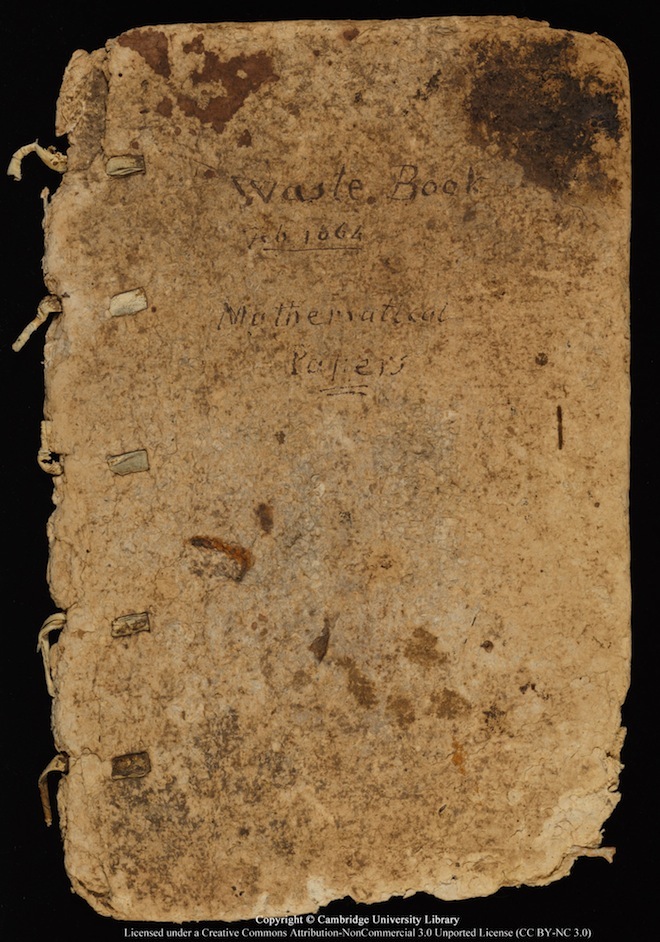 Waste Book
Feb 1664
Mathematical
Papers
Copyright © Cambridge University Library
Licensed under a Creative Commons Attribution-NonCommercial 3.0 Unported License (CC BY-NC 3.0)